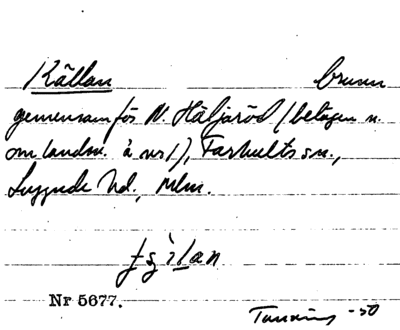 Källan brunn
gemensam för N. Häljaröd (belägen n.
om landsv. å nr 1), Farhults sn.,
Luggude hd., Mlm.
Nr 5677.
-50